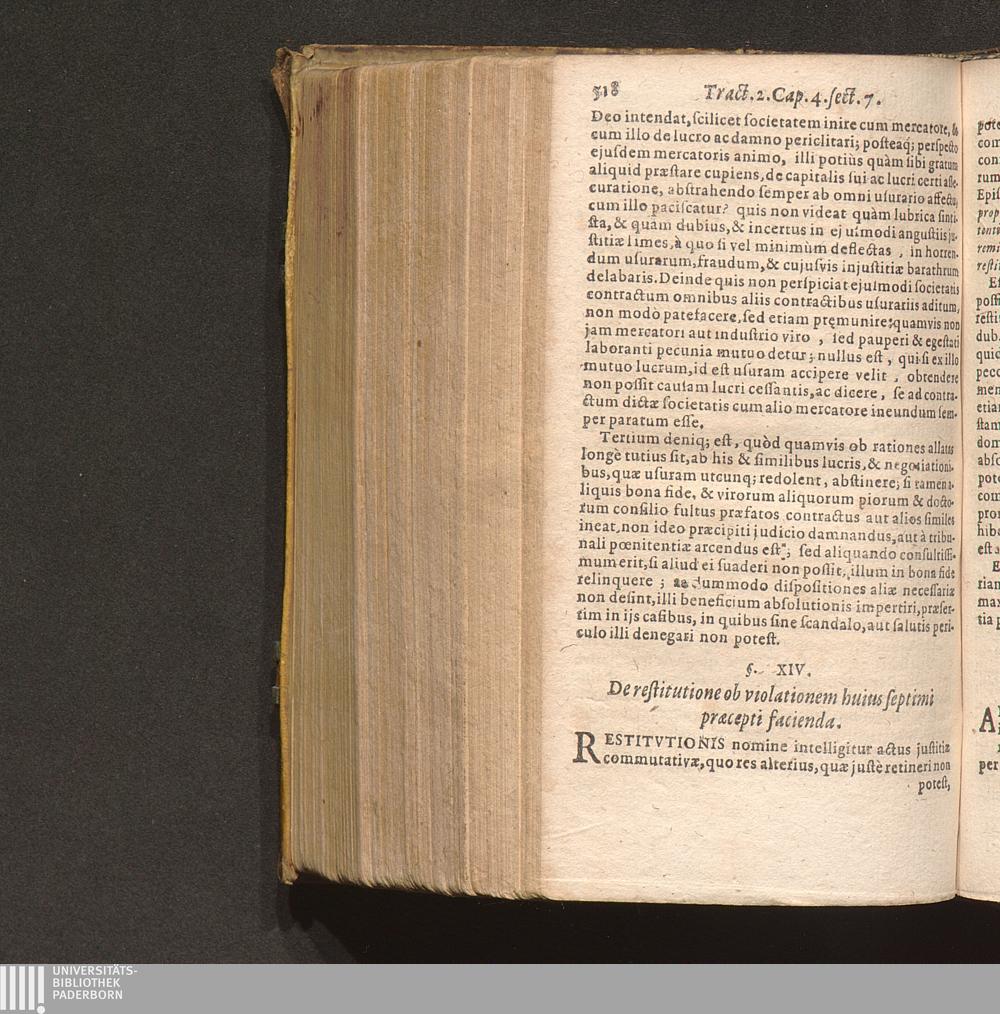 518 Tract.2.Cap.4.sect.7.
Deo intendat, scilicet societatem inire cum mercatore, &
cum illo de lucro ac damno periclitari; posteaq; perspecto
ejusdem mercatoris animo, illi potiùs quàm sibi gratum
aliquid præstare cupiens, de capitalis sui ac lucri certi asse-
curatione, abstrahendo semper ab omni usurario affectu,
cum illo paciscatur? quis non videat quàm lubrica sint i-
sta, & quàm dubius, & incertus in ejusmodi angustiis ju-
stitiæ limes, à quo si vel minimùm deflectas, in horren-
dum usurarum, fraudum, & cujusvis injustitiæ barathrum
delabaris. Deinde quis non perspiciat ejusmodi societatis
contractum omnibus aliis contractibus usurariis aditum,
non modò patefacere, sed etiam pręmunire: quamvis non
jam mercatori aut industrio viro, sed pauperi & egestati
laboranti pecunia mutuo detur; nullus est, qui si ex illo
mutuo lucrum, id est usuram accipere velit, obtendere
non possit causam lucri cessantis, ac dicere, se ad contra-
ctum dictæ societatis cum alio mercatore ineundum sem-
per paratum esse.
Tertium deniq; est, quòd quamvis ob rationes allatas
longè tutius sit, ab his & similibus lucris, & negotiationi-
bus, quæ usuram utcunq; redolent, abstinere; si tamen a-
liquis bona fide, & virorum aliquorum piorum & docto-
rum consilio fultus præfatos contractus aut alios similes
ineat, non ideo præcipiti judicio damnandus, aut à tribu-
nali pœnitentiæ arcendus est; sed aliquando consultissi-
mum erit, si aliud ei suaderi non possit, illum in bona fide
relinquere; ac dummodo dispositiones aliæ necessariæ
non desint, illi beneficium absolutionis impertiri, præser-
tim in ijs casibus, in quibus sine scandalo, aut salutis peri-
culo illi denegari non potest.
§. XIV.
De restitutione ob violationem huius septimi
præcepti facienda.
RESTITVTIONIS nomine intelligitur actus justitiæ
commutativæ, quo res alterius, quæ justè retineri non
potest,
UNIVERSITÄTS-
BIBLIOTHEK
PADERBORN